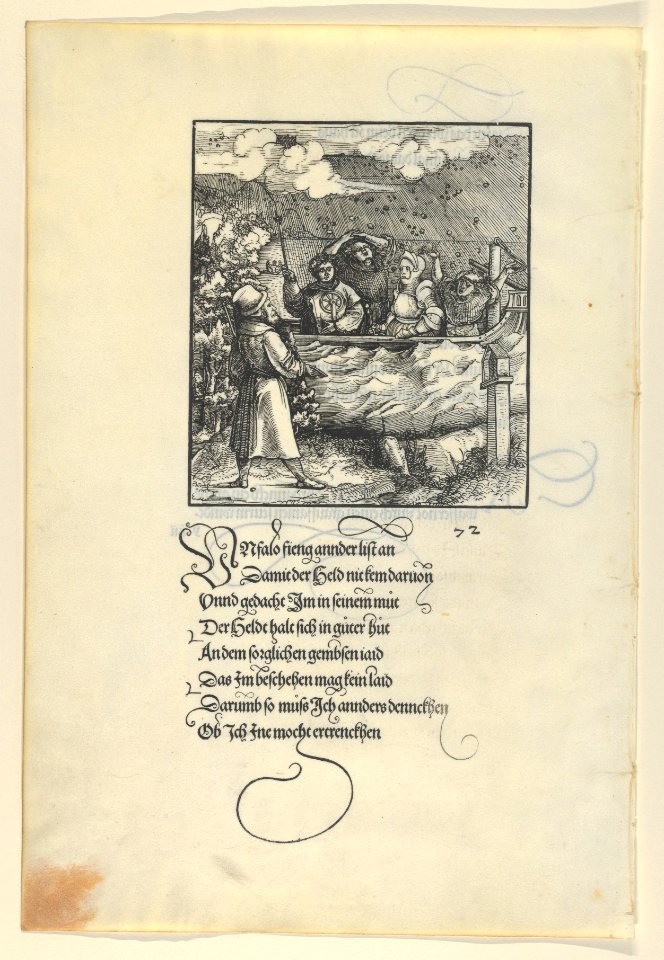 72
VNfalo fieng annder list an
Damit der Held nit kem daruon
Vnnd gedacht Im in seinem můt
Der Heldt halt sich in gůter hůt
An dem sorglichen gembsen iaid
Das Im beschehen mag kein laid
Darumb so můß Ich annders denncken
Ob Ich Ine mocht ertrenckhen